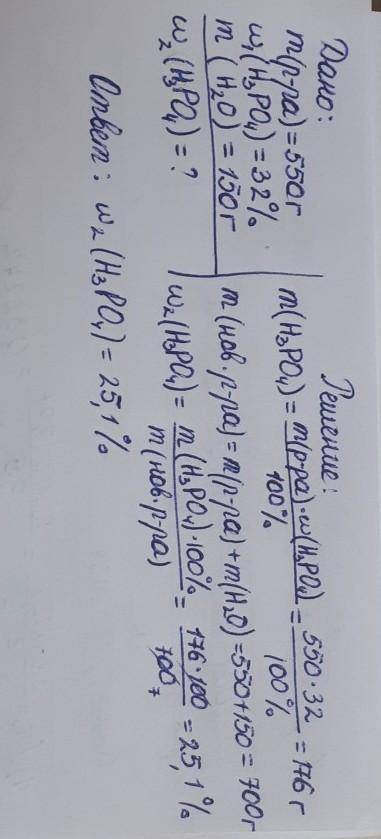 Дано:
m(р-ра) = 550г
w₁(H₃PO₄) = 32%
m(H₂O) = 150г
w₂(H₃PO₄) = ?
Решение:
m(H₃PO₄) = m(р-ра)·w(H₃PO₄) / 100% = 550·32 / 100% = 176 г
m(нов.р-ра) = m(р-ра) + m(H₂O) = 550+150 = 700г
w₂(H₃PO₄) = m(H₃PO₄)·100% / m(нов.р-ра) = 176·100 / 700 7 = 25,1%
Ответ: w₂(H₃PO₄) = 25,1%